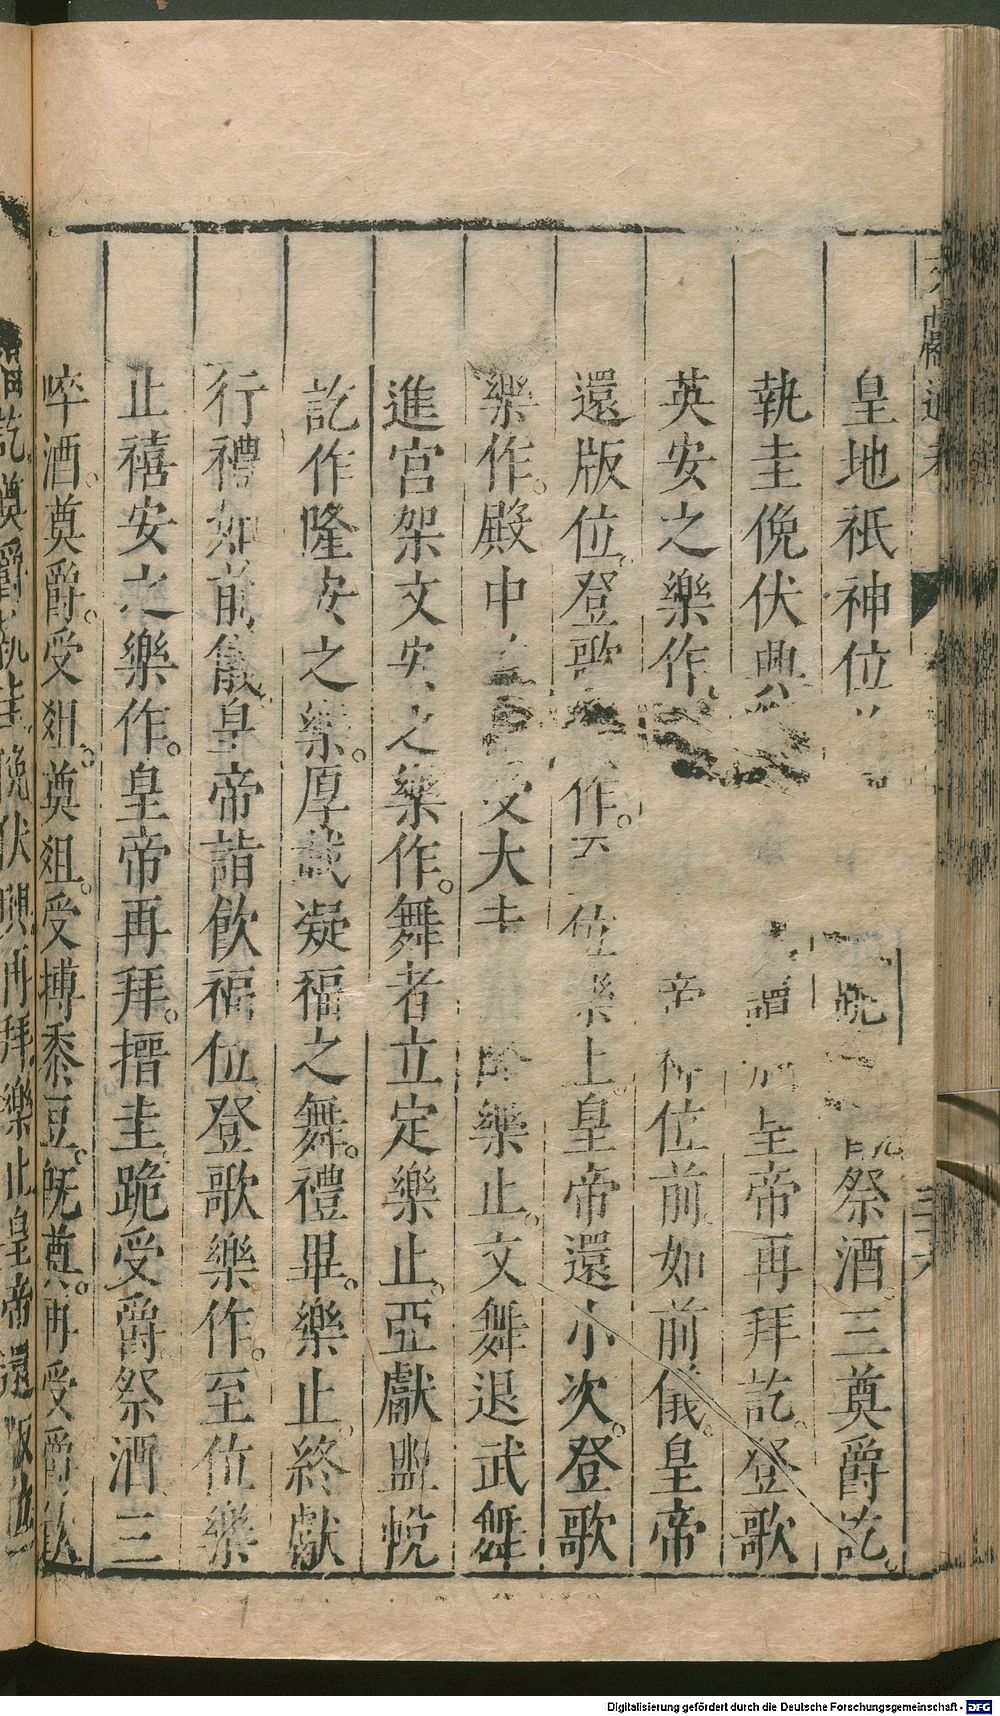 皇地祇神位跪祭酒。三奠爵訖。
執圭俛伏興讀皇帝再拜訖。登歌
英安之樂作。帝神位前如前儀。皇帝
還版位。登歌作。至位樂止。皇帝還小次。登歌
樂作。殿中大圭樂止。文舞退武舞
進宮架文安之樂作。舞者立定樂止。亞獻盥帨
訖作隆安之樂。厚載凝福之舞。禮畢。樂止。終獻
行禮如前儀。皇帝詣飲福位。登歌樂作。至位樂
止禧安之樂作。皇帝再拜。搢圭跪受爵祭酒三
啐酒。奠爵。受俎。奠俎。受摶黍豆。旣奠。再受爵飲
訖奠爵執圭俛伏興再拜樂止皇帝還版位
三十六
Digitalisierung gefördert durch die Deutsche Forschungsgemeinschaft - DFG